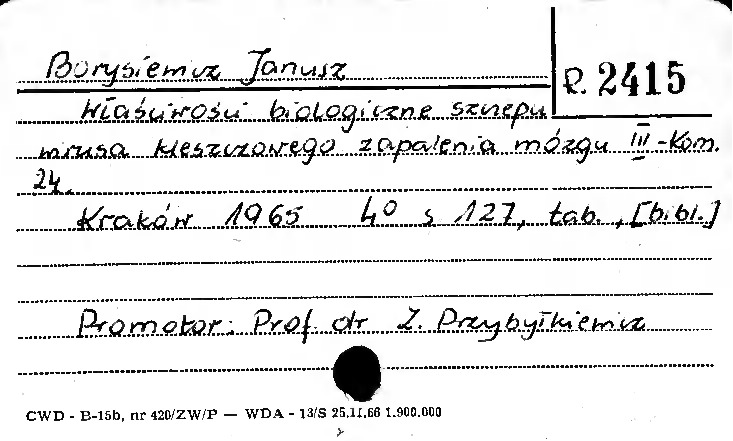 Borysiewicz Janusz
R. 2415
Właściwości biologiczne szczepu
wirusa kleszczowego zapalenia mózgu III-Kom.
24.
Kraków 1965 4° s 127, tab., [bibl.]
Promotor: Prof. dr Z. Przybyłkiewicz
CWD - B-15b, nr 420/ZW/P — WDA - 13/S 25.11.66 1.900.000